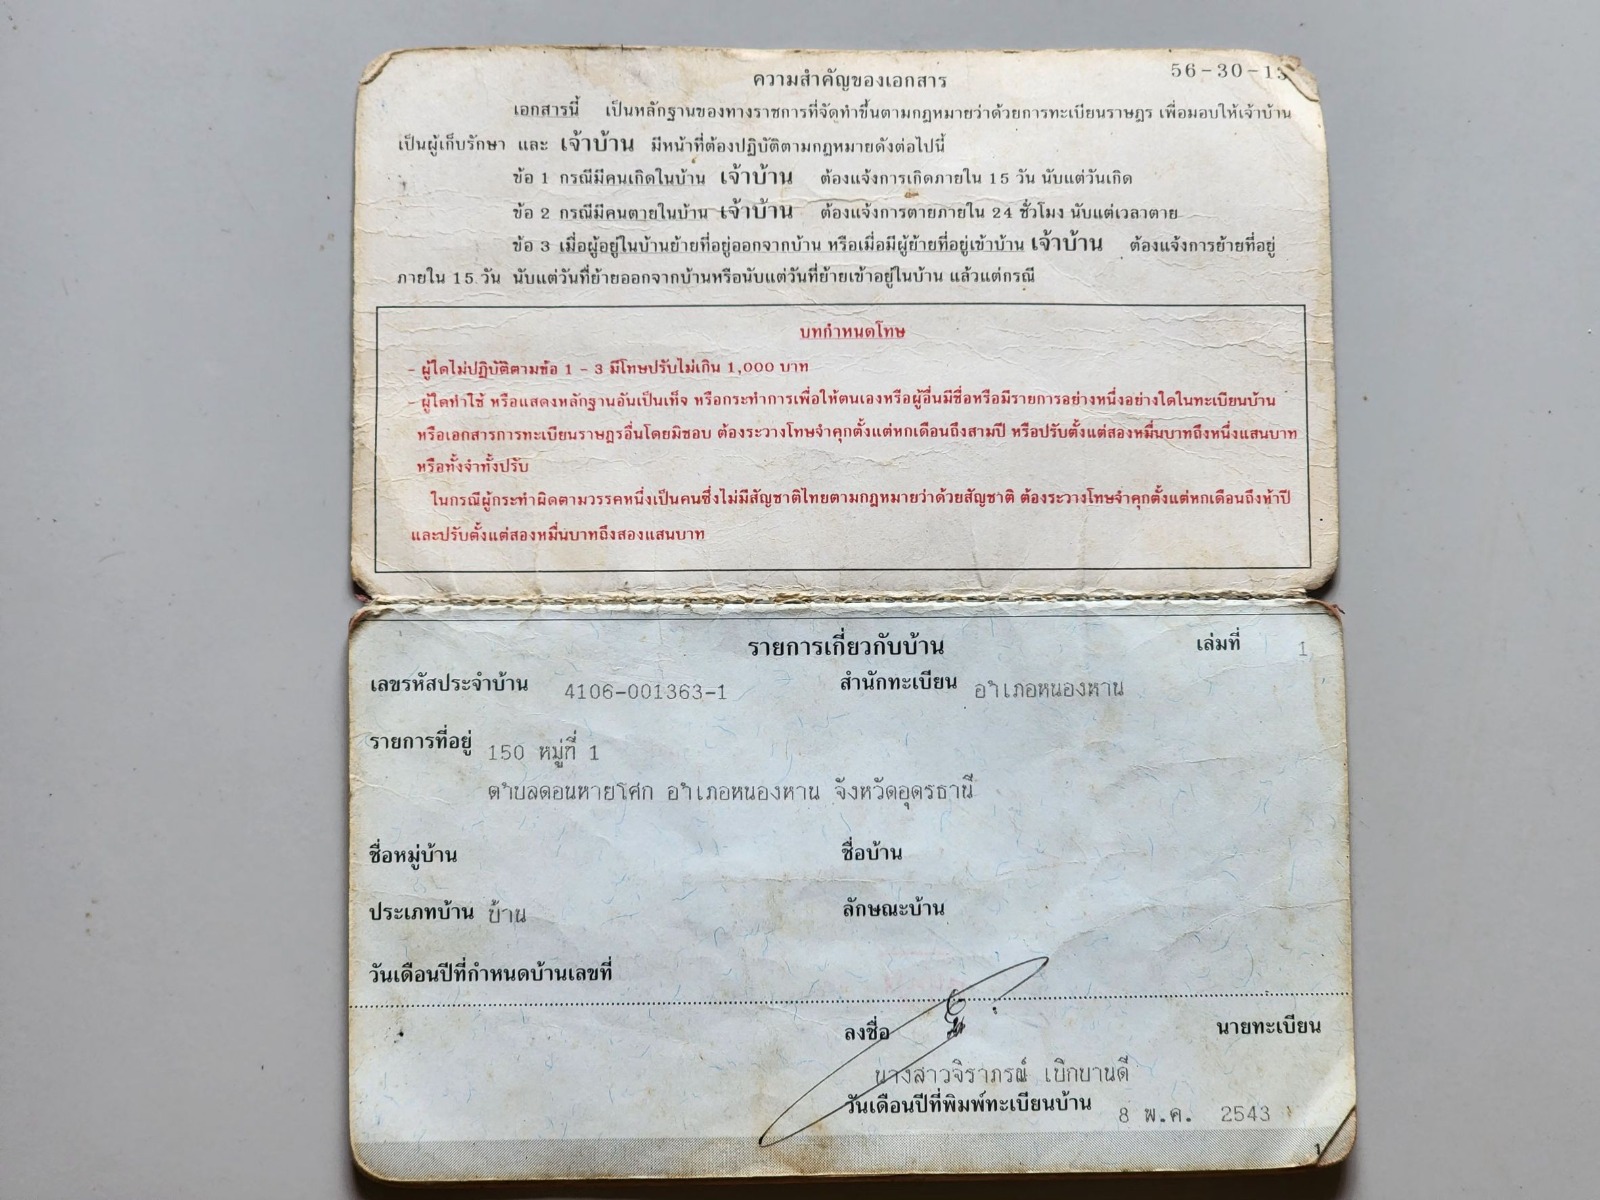 ความสำคัญของเอกสาร
56-30-13
เอกสารนี้ เป็นหลักฐานของทางราชการที่จัดทำขึ้นตามกฎหมายว่าด้วยการทะเบียนราษฎร เพื่อมอบให้เจ้าบ้าน
เป็นผู้เก็บรักษา และ เจ้าบ้าน มีหน้าที่ต้องปฏิบัติตามกฎหมายดังต่อไปนี้
ข้อ 1 กรณีมีคนเกิดในบ้าน เจ้าบ้าน ต้องแจ้งการเกิดภายใน 15 วัน นับแต่วันเกิด
ข้อ 2 กรณีมีคนตายในบ้าน เจ้าบ้าน ต้องแจ้งการตายภายใน 24 ชั่วโมง นับแต่เวลาตาย
ข้อ 3 เมื่อผู้อยู่ในบ้านย้ายที่อยู่ออกจากบ้าน หรือเมื่อมีผู้ย้ายที่อยู่เข้าบ้าน เจ้าบ้าน ต้องแจ้งการย้ายที่อยู่
ภายใน 15 วัน นับแต่วันที่ย้ายออกจากบ้านหรือนับแต่วันที่ย้ายเข้าอยู่ในบ้าน แล้วแต่กรณี
บทกำหนดโทษ
- ผู้ใดไม่ปฏิบัติตามข้อ 1 - 3 มีโทษปรับไม่เกิน 1,000 บาท
- ผู้ใดทำใช้ หรือแสดงหลักฐานอันเป็นเท็จ หรือกระทำการเพื่อให้ตนเองหรือผู้อื่นมีชื่อหรือมีรายการอย่างหนึ่งอย่างใดในทะเบียนบ้าน
หรือเอกสารการทะเบียนราษฎรอื่นโดยมิชอบ ต้องระวางโทษจำคุกตั้งแต่หกเดือนถึงสามปี หรือปรับตั้งแต่สองหมื่นบาทถึงหนึ่งแสนบาท
หรือทั้งจำทั้งปรับ
ในกรณีผู้กระทำผิดตามวรรคหนึ่งเป็นคนซึ่งไม่มีสัญชาติไทยตามกฎหมายว่าด้วยสัญชาติ ต้องระวางโทษจำคุกตั้งแต่หกเดือนถึงห้าปี
และปรับตั้งแต่สองหมื่นบาทถึงสองแสนบาท
รายการเกี่ยวกับบ้าน เล่มที่ 1
เลขรหัสประจำบ้าน 4106-001363-1 สำนักทะเบียน อำเภอหนองหาน
รายการที่อยู่ 150 หมู่ที่ 1
ตำบลดอนหายโศก อำเภอหนองหาน จังหวัดอุดรธานี
ชื่อหมู่บ้าน ชื่อบ้าน
ประเภทบ้าน บ้าน ลักษณะบ้าน
วันเดือนปีที่กำหนดบ้านเลขที่
ลงชื่อ นายทะเบียน
นางสาวจิราภรณ์ เบิกบานดี
วันเดือนปีที่พิมพ์ทะเบียนบ้าน 8 พ.ค. 2543
1